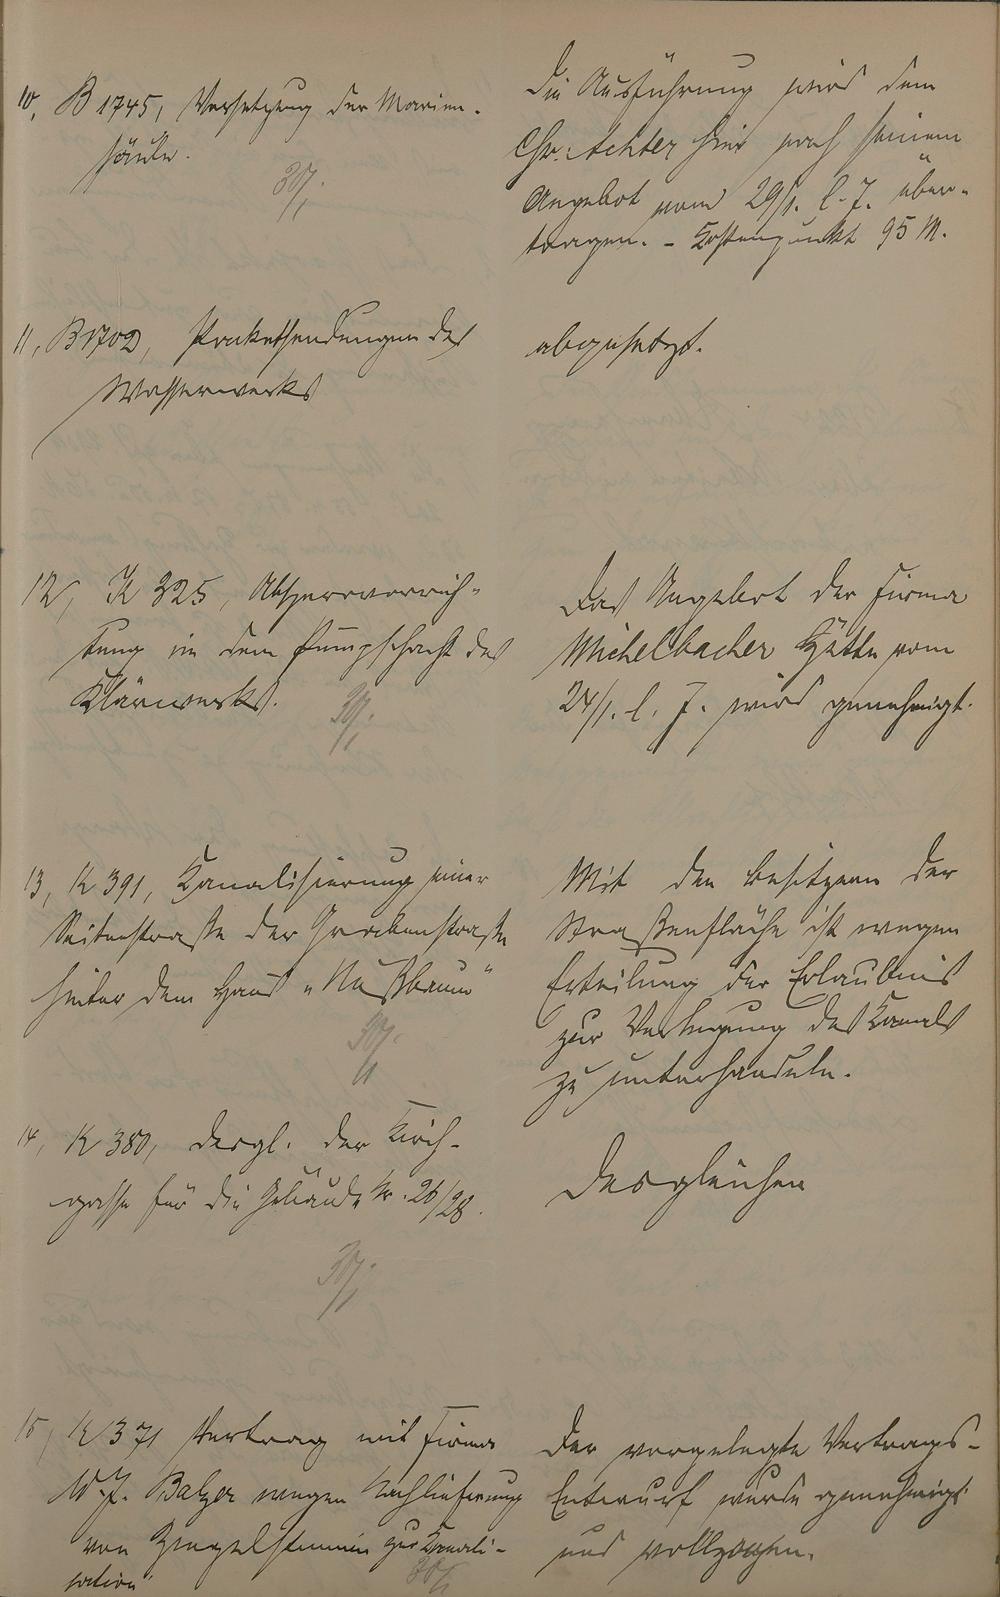 10, B 1745, Versetzung der Marien-
säule.
30/1.
Die Ausführung wird dem
Chr. Achter hier nach seinem
Angebot vom 29/1. l. J. über-
tragen. – Kostenpunkt 95 M.
11, B 1702, Paketsendungen des
Wasserwerks
abgesetzt.
12, K 325, Absperrvorrich-
tung in dem Pumpschacht des
Klärwerks.
30/1.
Das Angebot der Firma
Michelbacher Hütte vom
24/1. l. J. wird genehmigt.
13, K 391, Kanalisierung einer
Seitenstraße der Grabenstraße
hinter dem Haus „Nußbaum“
30/1.
Mit den Besitzern der
Straßenfläche ist wegen
Erteilung der Erlaubnis
zur Verlegung des Kanals
zu unterhandeln.
14, K 380, desgl. der Kirch-
gasse für die Gebäude Nr. 26/28.
30/1.
Desgleichen
15, K 371 Vertrag mit Firma
W. J. Balzer wegen Nachlieferung
von zur Kanali-
sation
30/1
Der vorgelegte Vertrags-
Entwurf wurde genehmigt
und vollzogen.